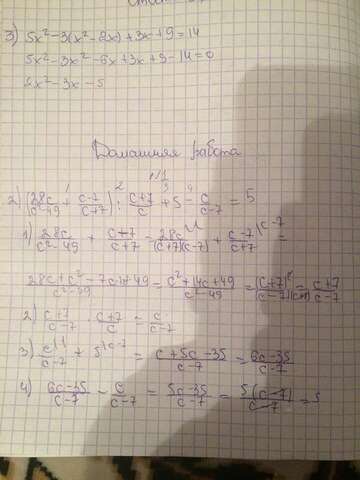 3) 5x²-3(x²-2x)+3x+9=14
5x²-3x²-6x+3x+9-14=0
2x²-3x-5
Домашняя работа
№1
2) (28c/(c²-49) + (c-7)/(c+7)) : (c+7)/c + 5 - c/(c-7) = 5
1) 28c/(c²-49) + (c-7)/(c+7) = 28c/((c+7)(c-7)) + (c-7)/(c+7) =
(28c+c²-7c+49)/(c²-49) = (c²+14c+49)/(c²-49) = (c+7)²/((c-7)(c+7)) = (c+7)/(c-7)
2) (c+7)/(c-7) : (c+7)/c = c/(c-7)
3) c/(c-7) + 5 = (c+5c-35)/(c-7) = (6c-35)/(c-7)
4) (6c-35)/(c-7) - c/(c-7) = (5c-35)/(c-7) = 5(c-7)/(c-7) = 5